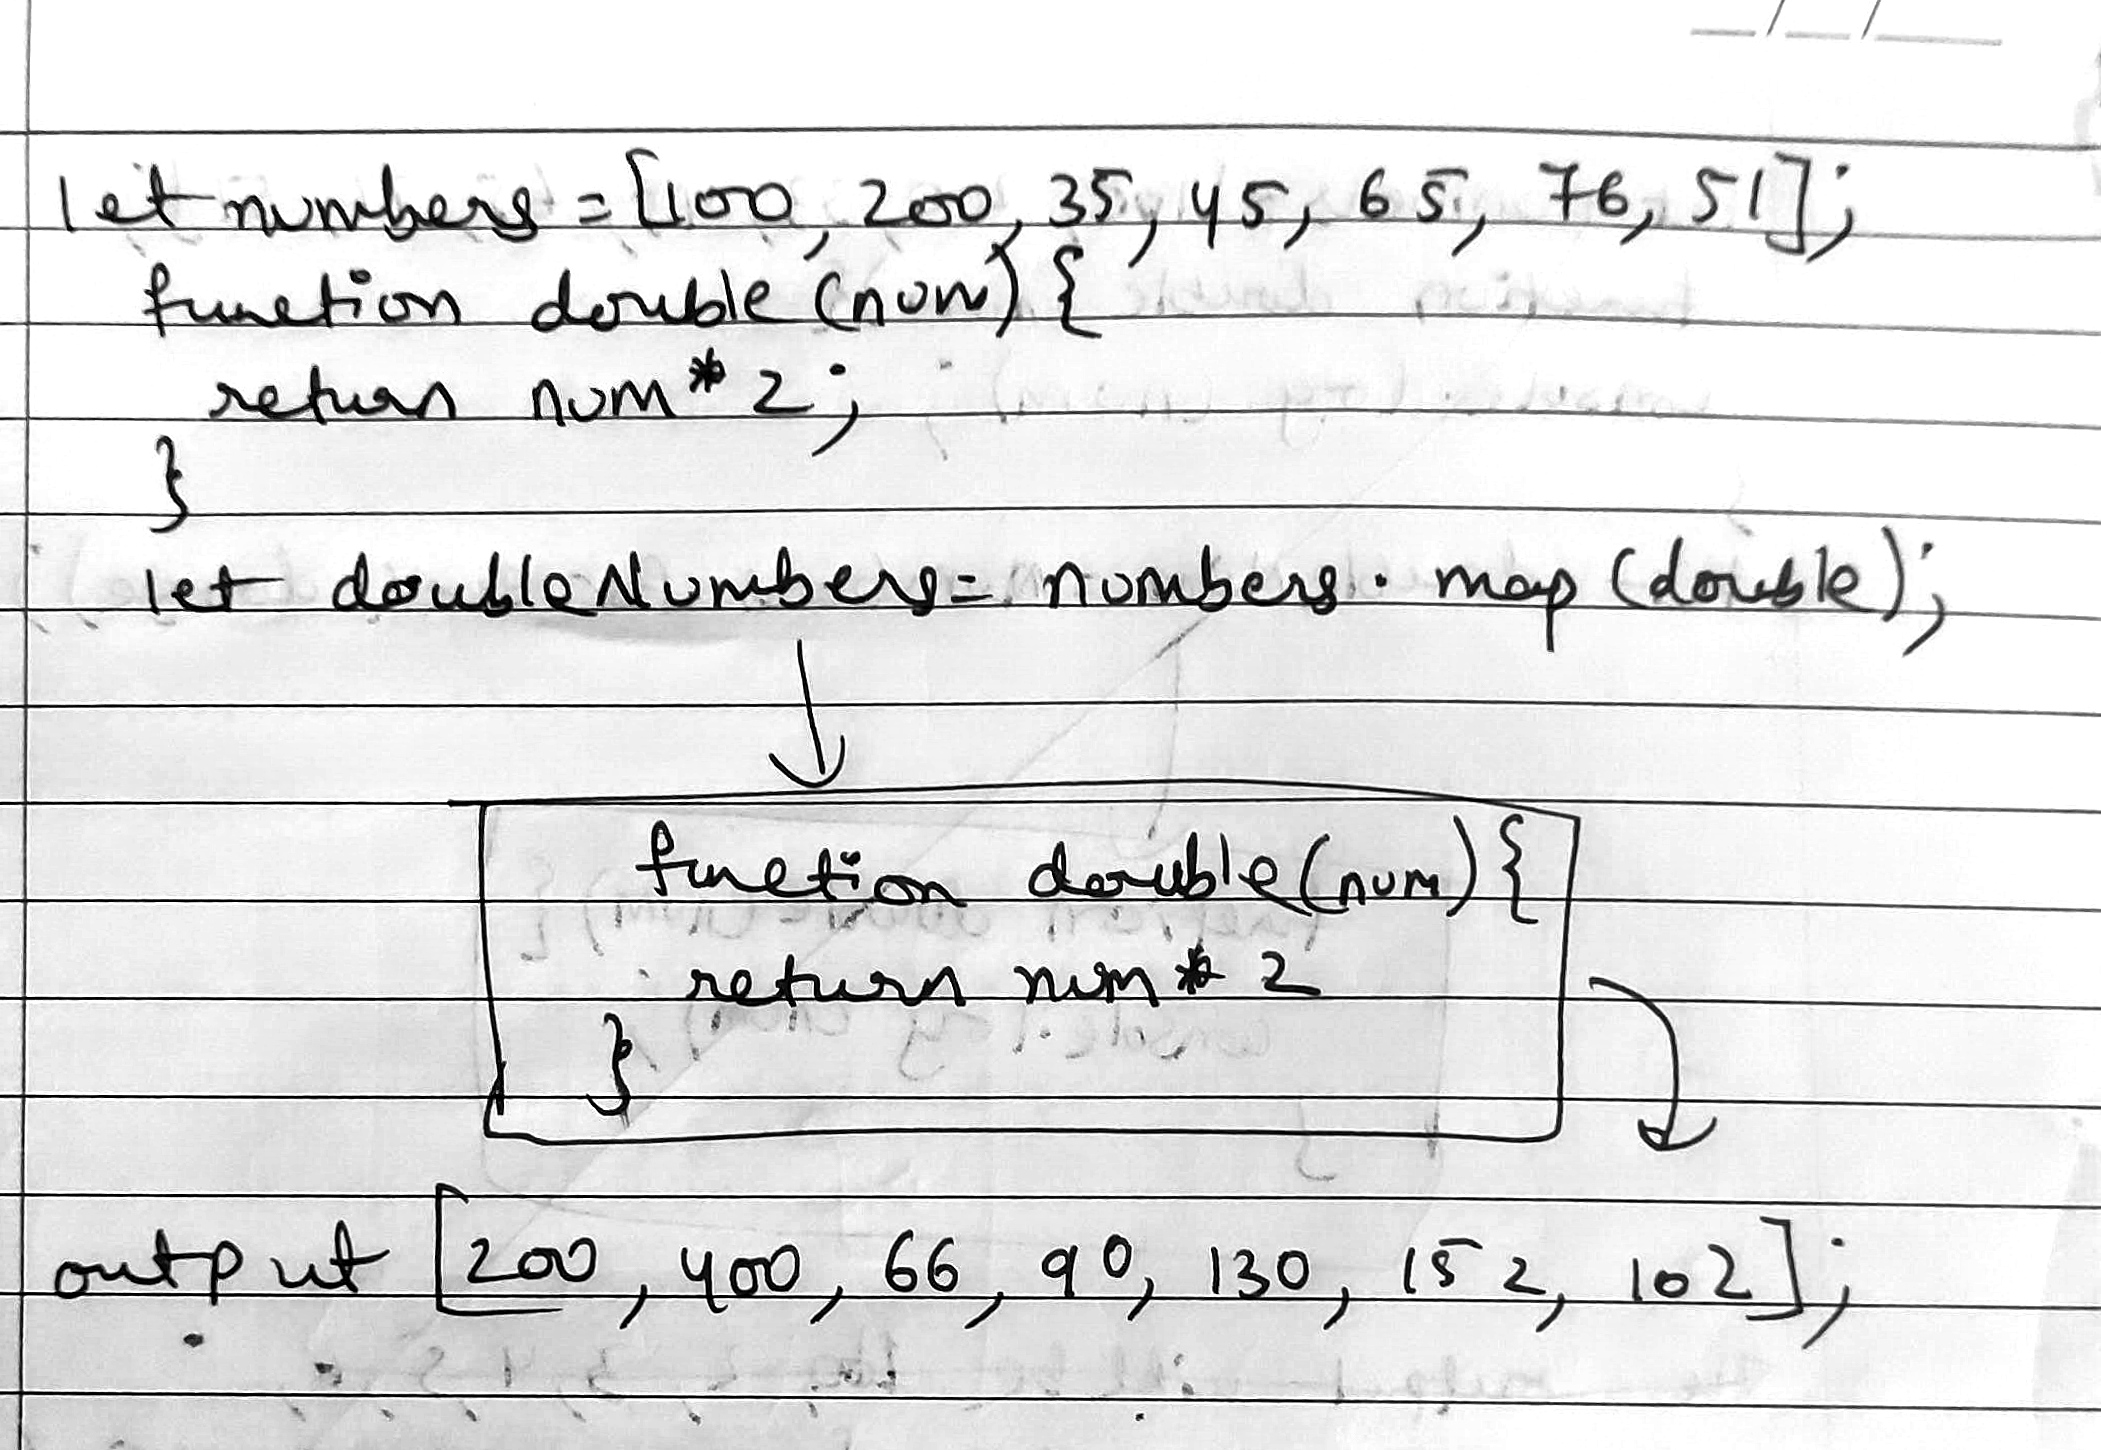 let numbers = [100, 200, 35, 45, 65, 76, 51];
function double (num) {
return num * 2;
}
let doubleNumbers = numbers. map (double);
function double(num) {
return num * 2
}
output [200, 400, 66, 90, 130, 152, 102];